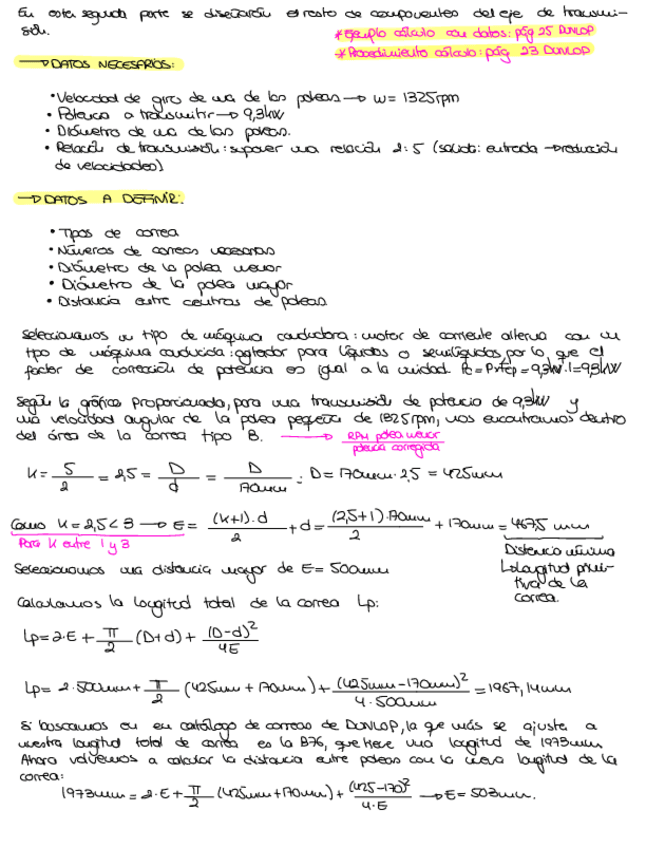 En esta segunda parte se diseñarán el resto de componentes del eje de transmi-
sión.
* Ejemplo cálculo con datos: pág 25 DUNLOP
* Procedimiento cálculo: pág 23 DUNLOP
→ DATOS NECESARIOS:
• Velocidad de giro de una de las poleas → w = 1325rpm
• Potencia a transmitir → 9,3kW
• Diámetro de una de las poleas.
• Relación de transmisión: suponer una relación 2:5 (salida: entrada → reducción
de velocidades)
→ DATOS A DEFINIR:
• Tipos de correa
• Números de correas necesarias
• Diámetro de la polea menor
• Diámetro de la polea mayor
• Distancia entre centros de poleas
Seleccionamos un tipo de máquina conductora: motor de corriente alterna con un
tipo de máquina conducida: agitador para líquidos o semilíquidos, por lo que el
factor de corrección de potencia es igual a la unidad. Pc = P·Fcp = 9,3kW·1 = 9,3kW
Según la gráfica proporcionada, para una transmisión de potencia de 9,3kW y
una velocidad angular de la polea pequeña de 1325rpm, nos encontramos dentro
del área de la correa tipo B. → RPM polea menor
potencia corregida
K = 5/2 = 2,5 = D/d = D/170mm ; D = 170mm · 2,5 = 425mm
Como K = 2,5 < 3 → E = (K+1)·d/2 + d = (2,5+1)·170mm/2 + 170mm = 467,5 mm
Para K entre 1 y 3
Distancia mínima
Longitud primi-
tiva de la
correa.
Seleccionamos una distancia mayor de E = 500mm
Calculamos la longitud total de la correa Lp:
Lp = 2·E + π/2 (D+d) + (D-d)²/4E
Lp = 2·500mm + π/2 (425mm + 170mm) + (425mm-170mm)²/4·500mm = 1967,14mm
Si buscamos en en catálogo de correas de DUNLOP, la que más se ajusta a
nuestra longitud total de correa es la B76, que tiene una longitud de 1973mm
Ahora volvemos a calcular la distancia entre poleas con la nueva longitud de la
correa:
1973mm = 2·E + π/2 (425mm+170mm) + (425-170)²/4·E → E = 503mm.